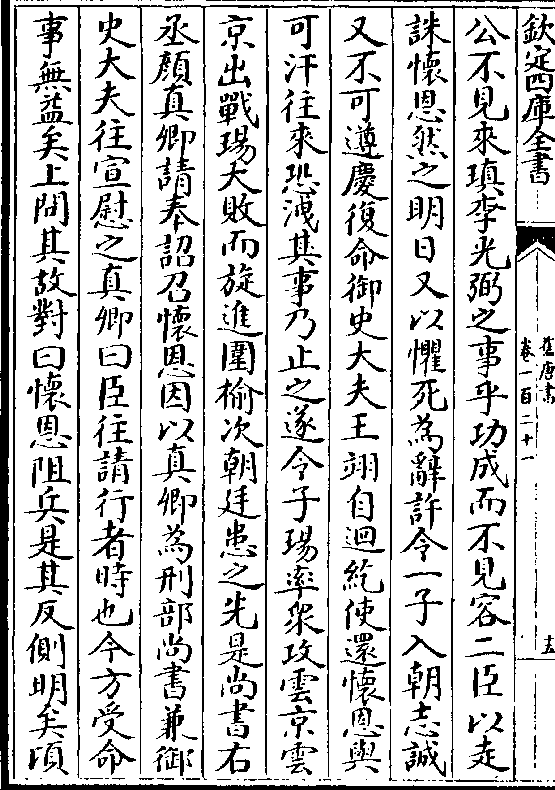 欽定四庫全書
舊唐書
卷一百二十一
公不見來瑱李光弼之事乎功成而不見容二臣以走
誅懷恩然之明日又以懼死為辭許令一子入朝志誠
又不可遵慶復命御史大夫王翊自迴紇使還懷恩與
可汗往來恐洩其事乃止之遂令子瑒率衆攻雲京雲
京出戰瑒大敗而旋進圍榆次朝廷患之先是尚書右
丞顔真卿請奉詔召懷恩因以真卿為刑部尚書兼御
史大夫往宣慰之真卿曰臣往請行者時也今方受命
事無益矣上問其故對曰懷恩阻兵是其反側明矣頃